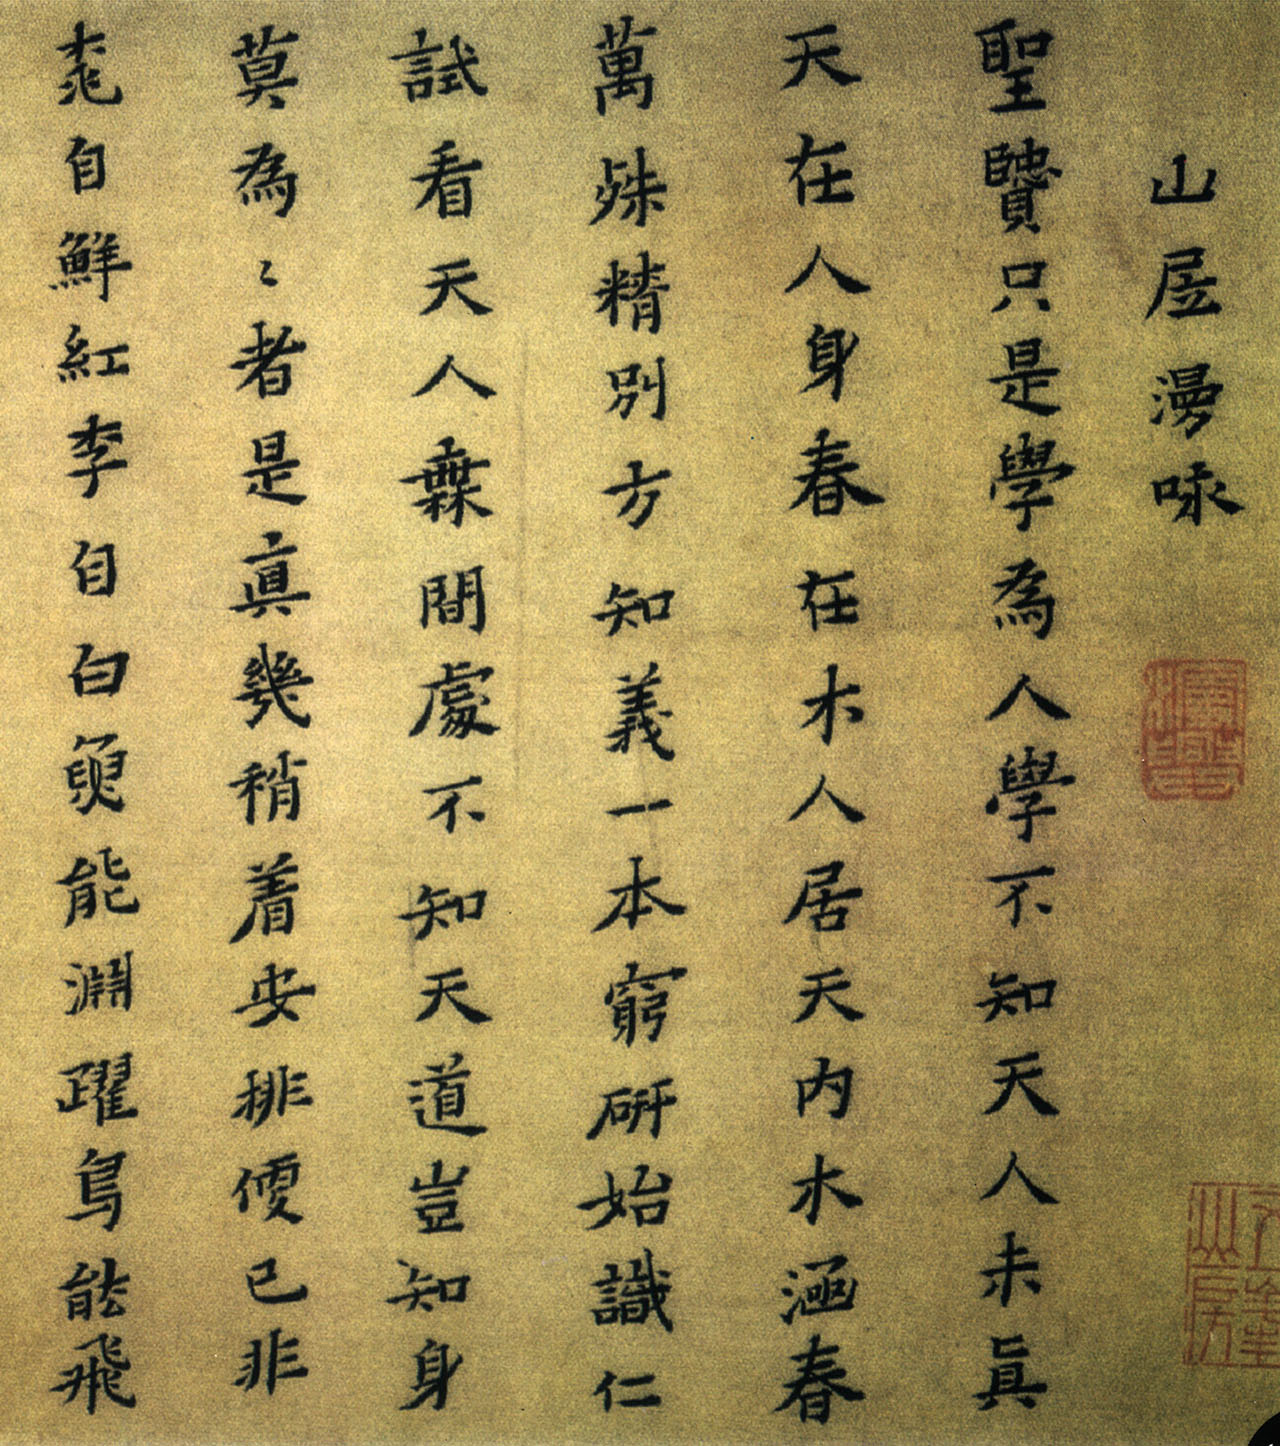 山居漫咏
聖贒只是學為人學不知天人未真
天在人身春在木人居天内木涵春
萬殊精別方知義一本窮研始識仁
試看天人無間處不知天道豈知身
莫為〻者是真幾稍着安排便已非
桃自鮮紅李自白魚能淵躍鳥能飛